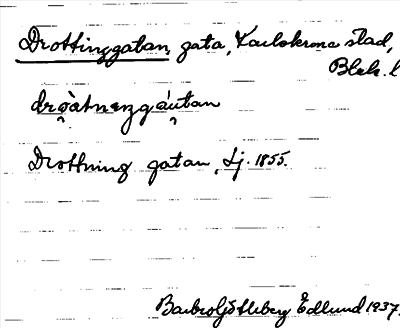 Drottninggatan, gata, Karlskrona stad,
Blek. l
drøàtnıngáutan
Drottning gatan, Lj. 1855.
Barbro Ljötleberg Edlund 1937.